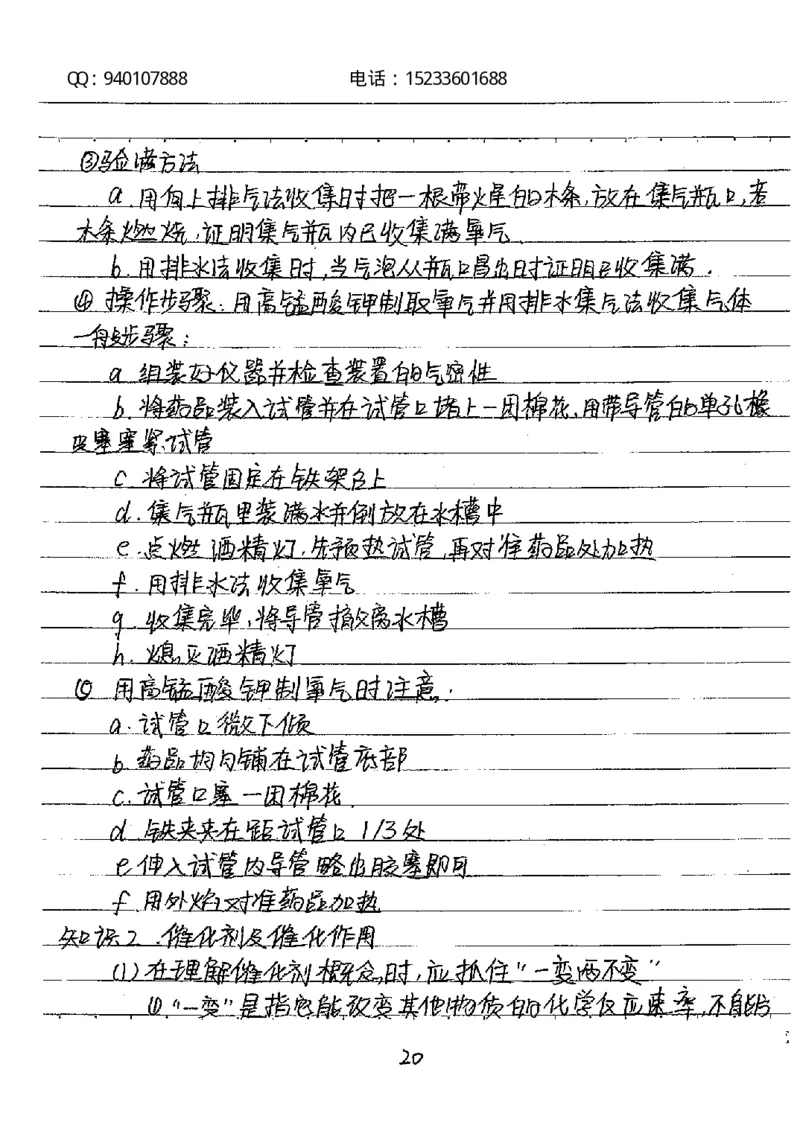 QQ：940107888 电话：15233601688
③验满方法
a.用向上排气法收集时把一根带火星的木条,放在集气瓶口,若
木条燃烧,证明集气瓶内已收集满氧气
b.用排水法收集时,当气泡从瓶口冒出时证明已收集满.
④操作步骤:用高锰酸钾制取氧气并用排水集气法收集气体
一般步骤:
a 组装好仪器并检查装置的气密性
b.将药品装入试管并在试管口堵上一团棉花,用带导管的单孔橡
皮塞塞紧试管
c.将试管固定在铁架台上
d.集气瓶里装满水并倒放在水槽中
e.点燃酒精灯.先预热试管,再对准药品处加热
f.用排水法收集氧气
g.收集完毕,将导管撤离水槽
h.熄灭酒精灯
用高锰酸钾制氧气时注意:
a.试管口微下倾
b 药品均匀铺在试管底部
c.试管口塞一团棉花.
d 铁夹夹在距试管口 1/3处
e伸入试管内导管略出胶塞即可
f.用外焰对准药品加热
知识2.催化剂及催化作用
(1)在理解催化剂概念时,应抓住"一变两不变"
①"一变"是指它能改变其他物质的化学反应速率,不能与
20